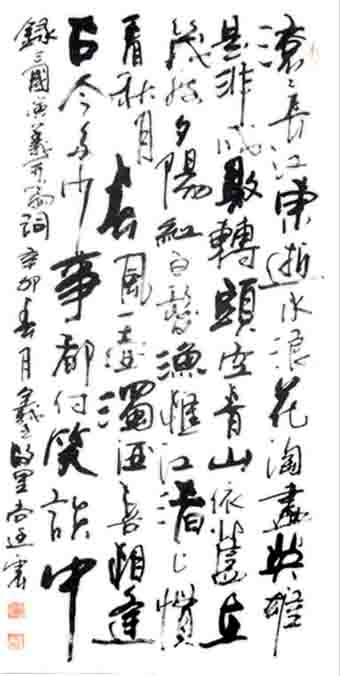 滚〻長江東逝水浪花淘盡英雄
是非成敗轉頭空青山依舊在
幾度夕陽紅白髮漁樵江渚上慣
看秋月春風一壺濁酒喜相逢
古今多少事都付笑談中
錄三國演義開篇詞辛卯春月羲之故里尚